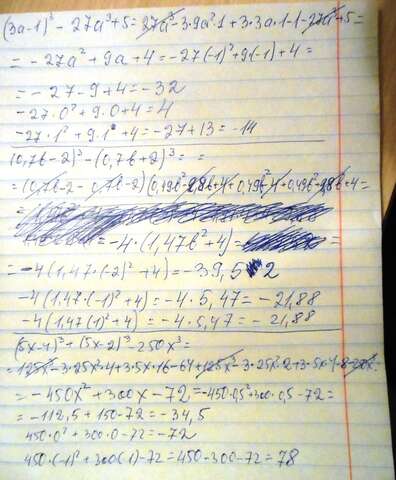 (3a-1)³ - 27a³+5 = 27a³-3·9a²·1+3·3a·1-1-27a³+5=
= -27a²+9a+4=-27(-1)²+9(-1)+4=
= -27-9+4=-32
-27·0²+9·0+4=4
-27·1²+9·1+4=-27+13=-14
(0,7b-2)³-(0,7b+2)³= =
= (0,7b-2-0,7b-2)(0,49b²-2,8b+4+0,49b²-4+0,49b²+2,8b+4=
= -4·(1,47b²+4)= =
= -4(1,47·(-2)²+4)=-39,52
-4(1,47·(-1)²+4)=-4·5,47=-21,88
-4(1,47(1)²+4)=-4·5,47=-21,88
(5x-4)³+(5x-2)³-250x³=
= 125x³-3·25x²·4+3·5x·16-64+125x³-3·25x²·2+3·5x·4-8-250x³=
= -450x²+300x-72=-450·0,5²+300·0,5-72=
= -112,5+150-72=-34,5
450·0²+300·0-72=-72
450·(-1)²+300(-1)-72=450-300-72=78